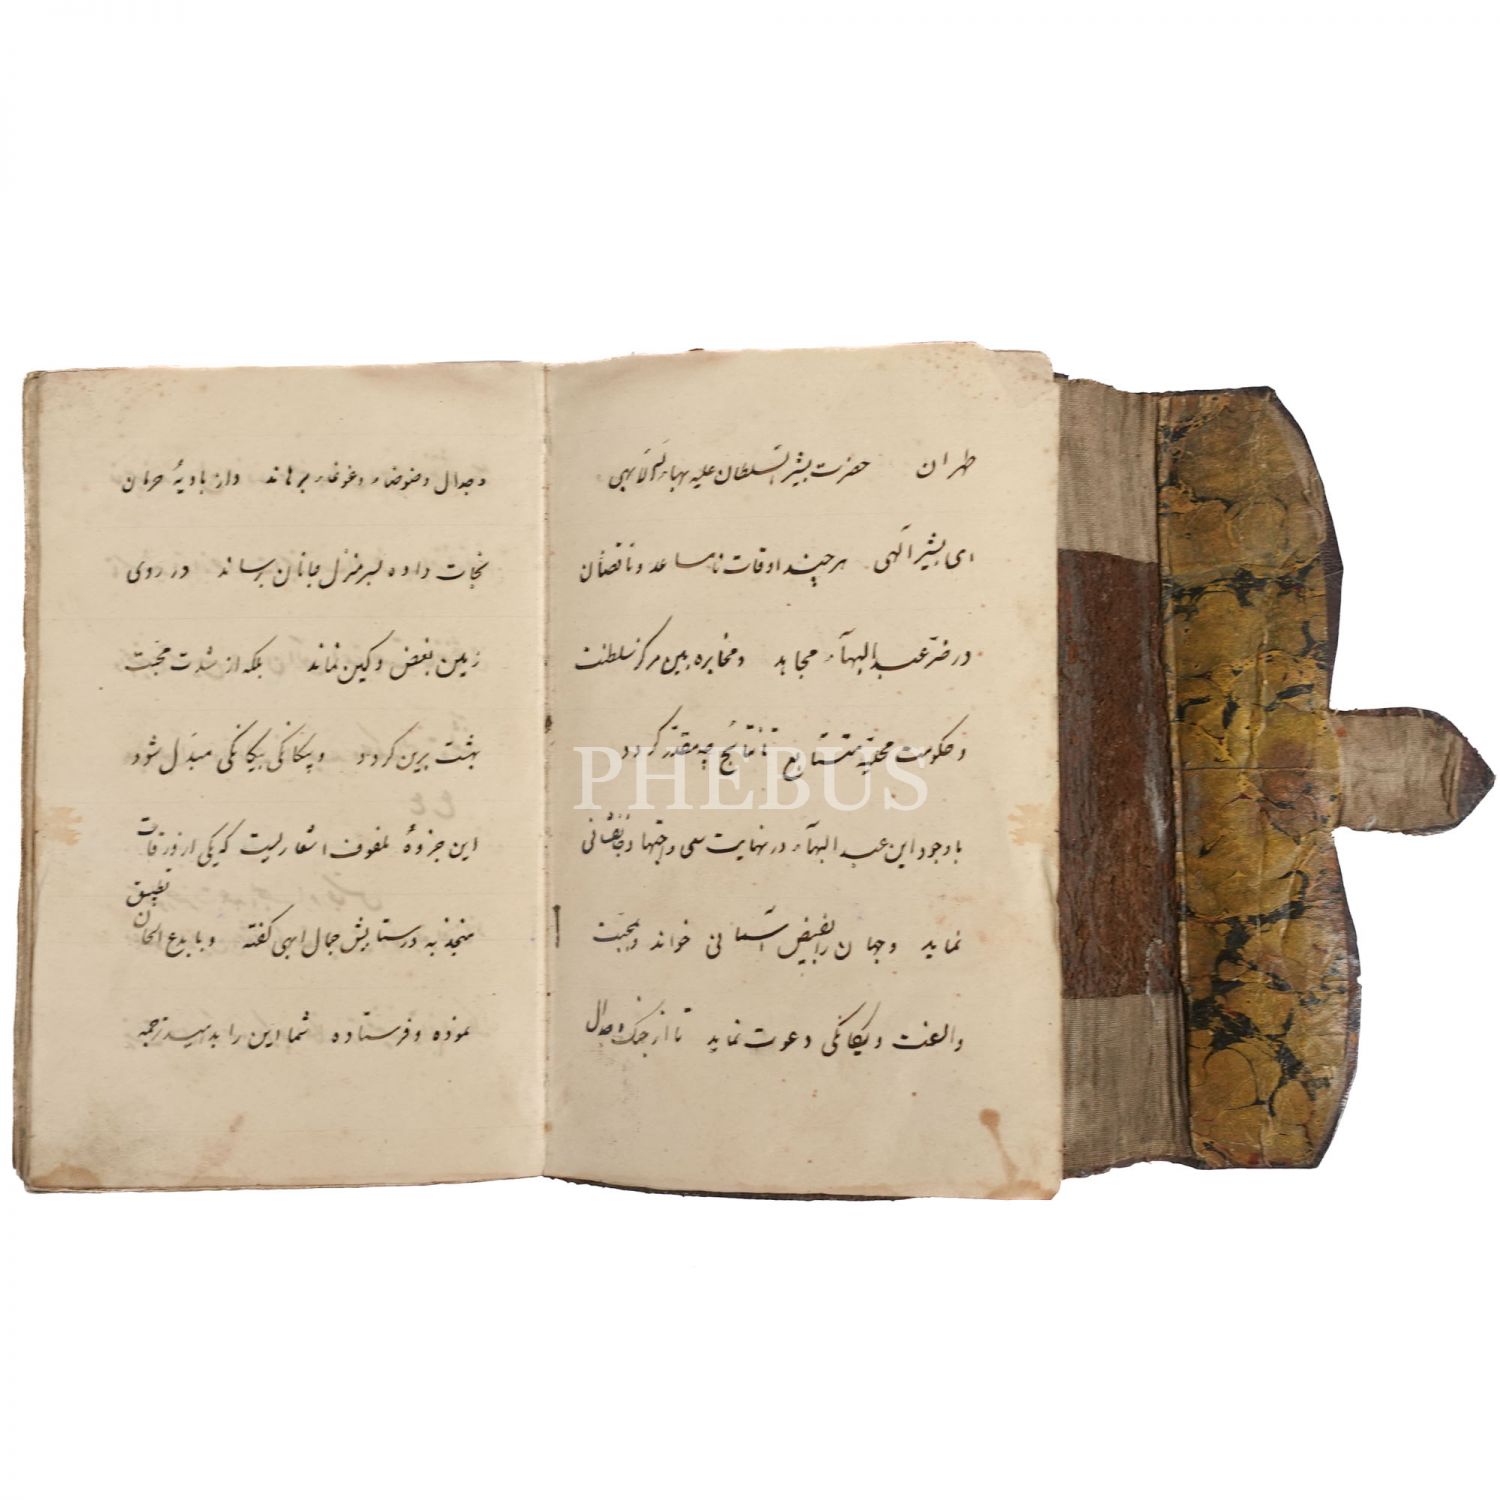 طهران حضرت بشیر السلطان علیه بهاءالله الابهی
ای بشیر الهی هرچند اوقات نامساعد و ناقضان
در ضرّ عبدالبهآء مجاهد و مخابره بین مرکز سلطنت
و حکومت محلیّه متتابع تا نتایج چه مقدّر گردد
با وجود این عبدالبهآء در نهایت سعی و اجتهاد و جانفشانی
نماید و جهان را بفیض آسمانی خواند و بمحبّت
و الفت و یگانگی دعوت نماید تا از جنگ و جدال
و جدال و ضوضاء و غوغاء برهاند و از بادیهٔ حرمان
نجات داده بسر منزل جانان برساند در روی
زمین بغض و کین نماند بلکه از شدت محبّت
بهشت برین گردد و بیگانگی بیگانگی مبدّل شود
این جزوهٔ ملفوف اشعاریست که یکی از ورقات
منجذبه در ستایش جمال ابهی گفته و بابدع الحان تطبیق
نموده و فرستاده شما این را بدهید ترجمه
PHEBUS